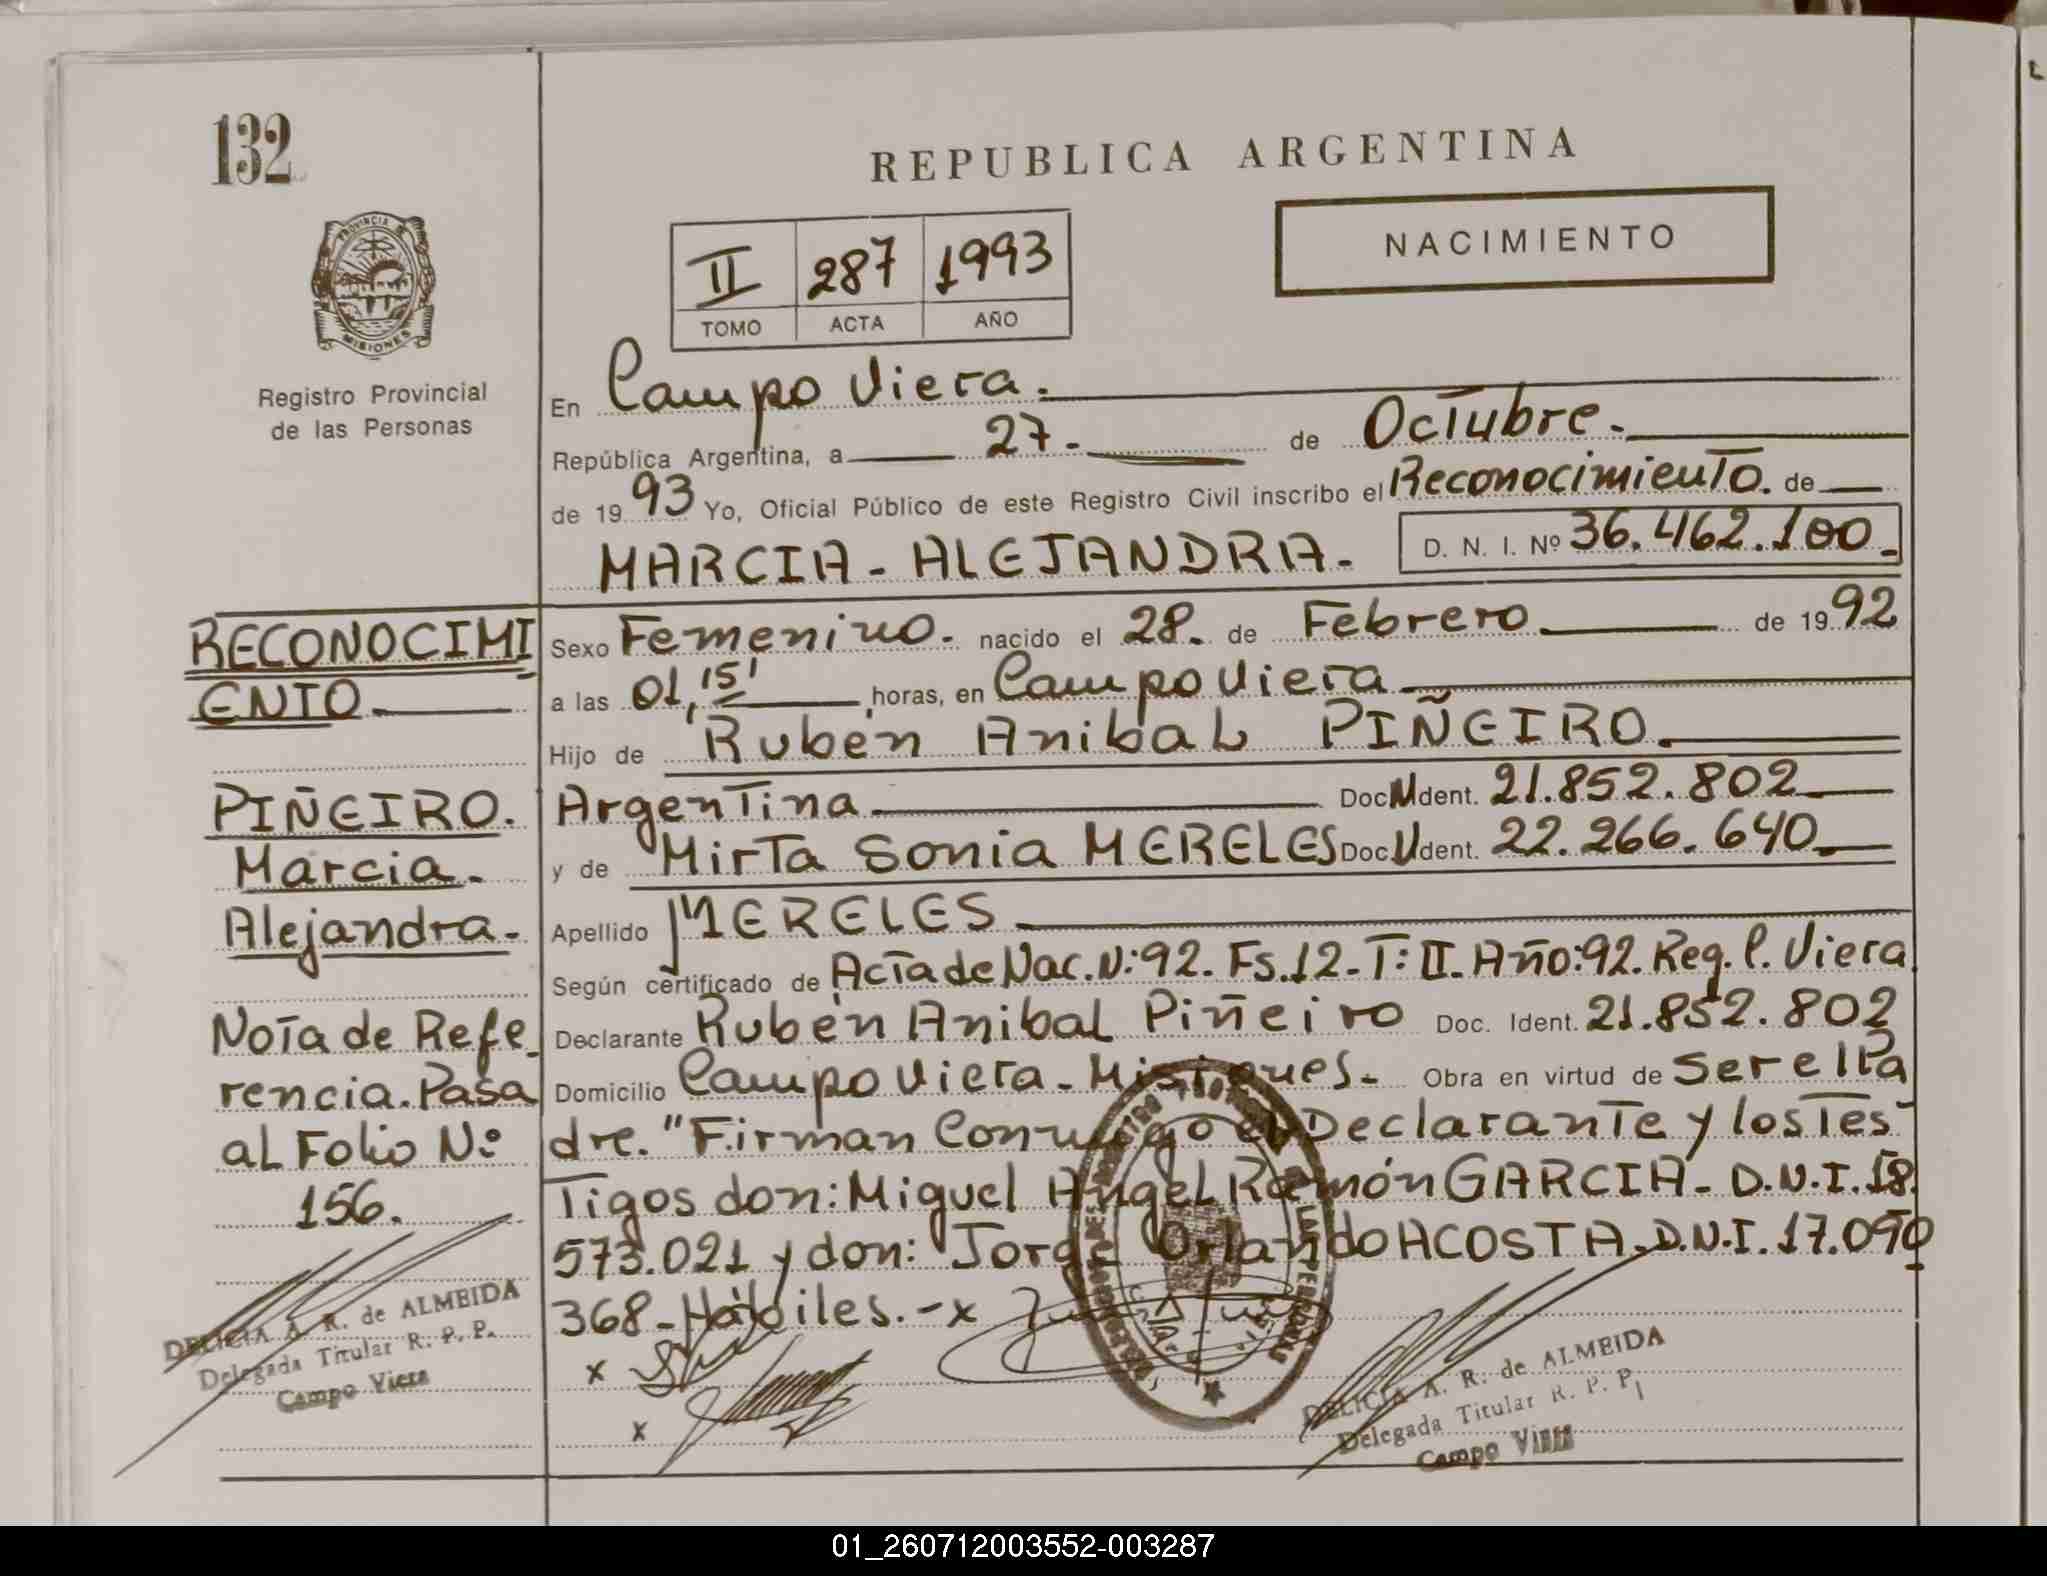 132
REPUBLICA ARGENTINA
NACIMIENTO
II 287 1993
TOMO ACTA AÑO
PROVINCIA DE
MISIONES
Registro Provincial
de las Personas
En Campo Viera.
República Argentina, a 27- de Octubre.
de 1993 Yo, Oficial Público de este Registro Civil inscribo el Reconocimiento. de
MARCIA - ALEJANDRA. D. N. I. Nº 36.462.100.
RECONOCIMI
ENTO
Sexo Femenino. nacido el 28. de Febrero de 1992
a las 01,15' horas, en Campo Viera
Hijo de Rubén Anibal PIÑEIRO.
PIÑEIRO.
Marcia.
Alejandra.
Argentina Doc. Ident. 21.852.802
y de Mirta Sonia MERELES Doc. Ident. 22.266.640
Apellido MERELES
Según certificado de Acta de Nac. N:92. Fs.12-T:II. Año:92. Reg. C. Viera
Declarante Rubén Anibal Piñeiro Doc. Ident. 21.852.802
Domicilio Campo Viera - Misiones. Obra en virtud de Ser el Pa
Nota de Refe
rencia. Pasa
al Folio Nº
156.
dre. "Firman Conmigo el Declarante y los Tes-
Tigos don: Miguel Angel Ramón GARCIA - D.N.I. 18.
573.021 y don: Jorge Orlando ACOSTA. D.N.I. 17.090
368 - Hábiles. - x
x
x
DELICIA A. R. de ALMEIDA
Delegada Titular R. P. P.
Campo Viera
DELICIA A. R. de ALMEIDA
Delegada Titular R. P. P.
Campo Viera
01_260712003552-003287